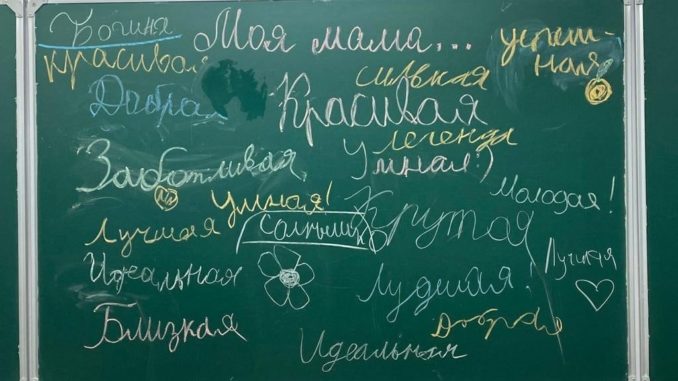 Богиня Моя мама... успеш-
ная
красивая
сильная
Добрая Красивая
легенда
Заботливая Умная:)
Молодая!
Умная!
Лучшая Солнышко Крутая
Лучшая
Идеальная Лучшая!
Близкая Добрая
Идеальная